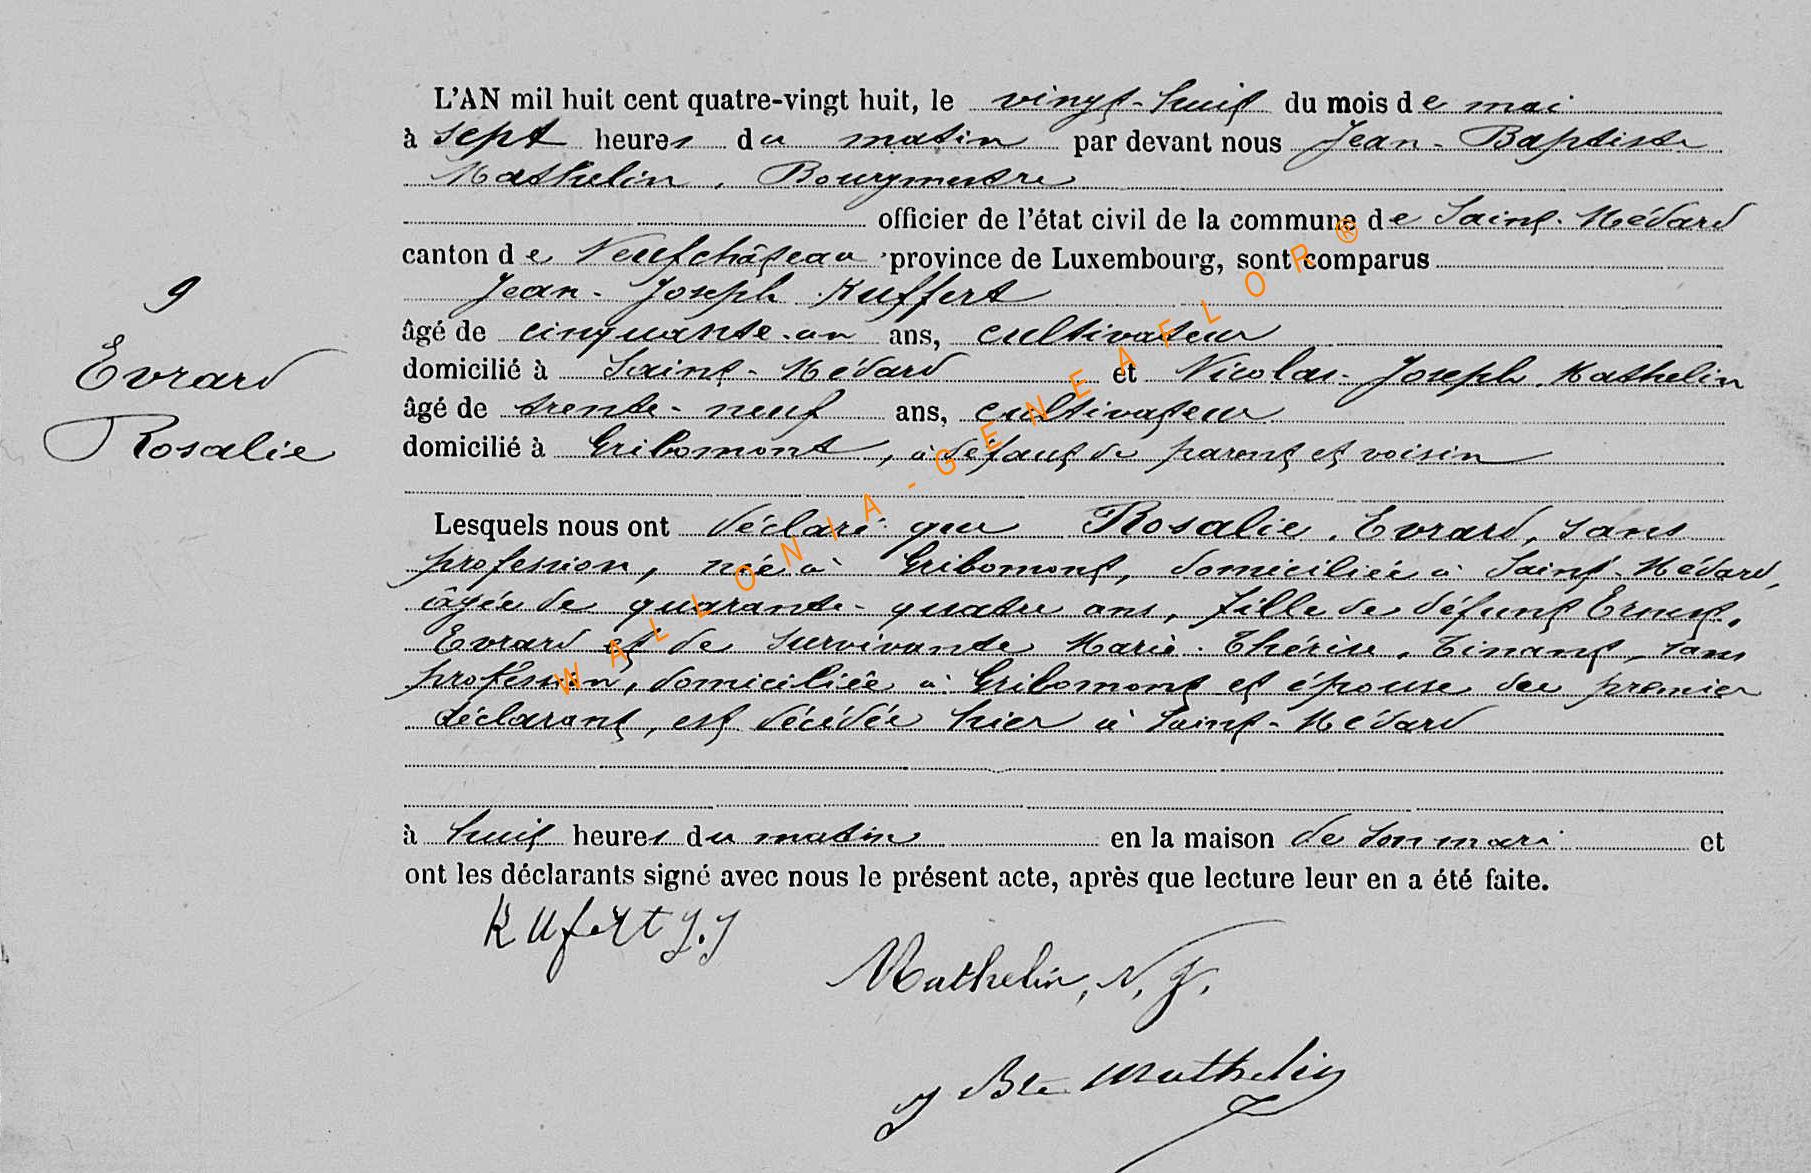 L'AN mil huit cent quatre-vingt huit, le vingt-huit du mois de mai
à sept heures du matin par devant nous Jean-Baptiste
Mathelin, Bourgmestre
officier de l'état civil de la commune de Saint-Médard
canton de Neufchâteau province de Luxembourg, sont comparus
Jean-Joseph Kuffert
âgé de cinquante-un ans, cultivateur
domicilié à Saint-Médard et Nicolas-Joseph Mathelin
âgé de trente-neuf ans, cultivateur
domicilié à Gribomont, à défaut de parent et voisin
9
Evrard
Rosalie
Lesquels nous ont déclaré que Rosalie Evrard, sans
profession, née à Gribomont, domiciliée à Saint-Médard,
âgée de quarante-quatre ans, fille de défunt Ernest
Evrard et de survivante Marie-Thérèse Tinant, sans
profession, domiciliée à Gribomont et épouse du premier
déclarant, est décédée hier à Saint-Médard
à huit heures du matin en la maison de son mari et
ont les déclarants signé avec nous le présent acte, après que lecture leur en a été faite.
Kufert J.J
Mathelin, N. J.
J Bte Mathelin
WALLONIA-GENEAFLOR®